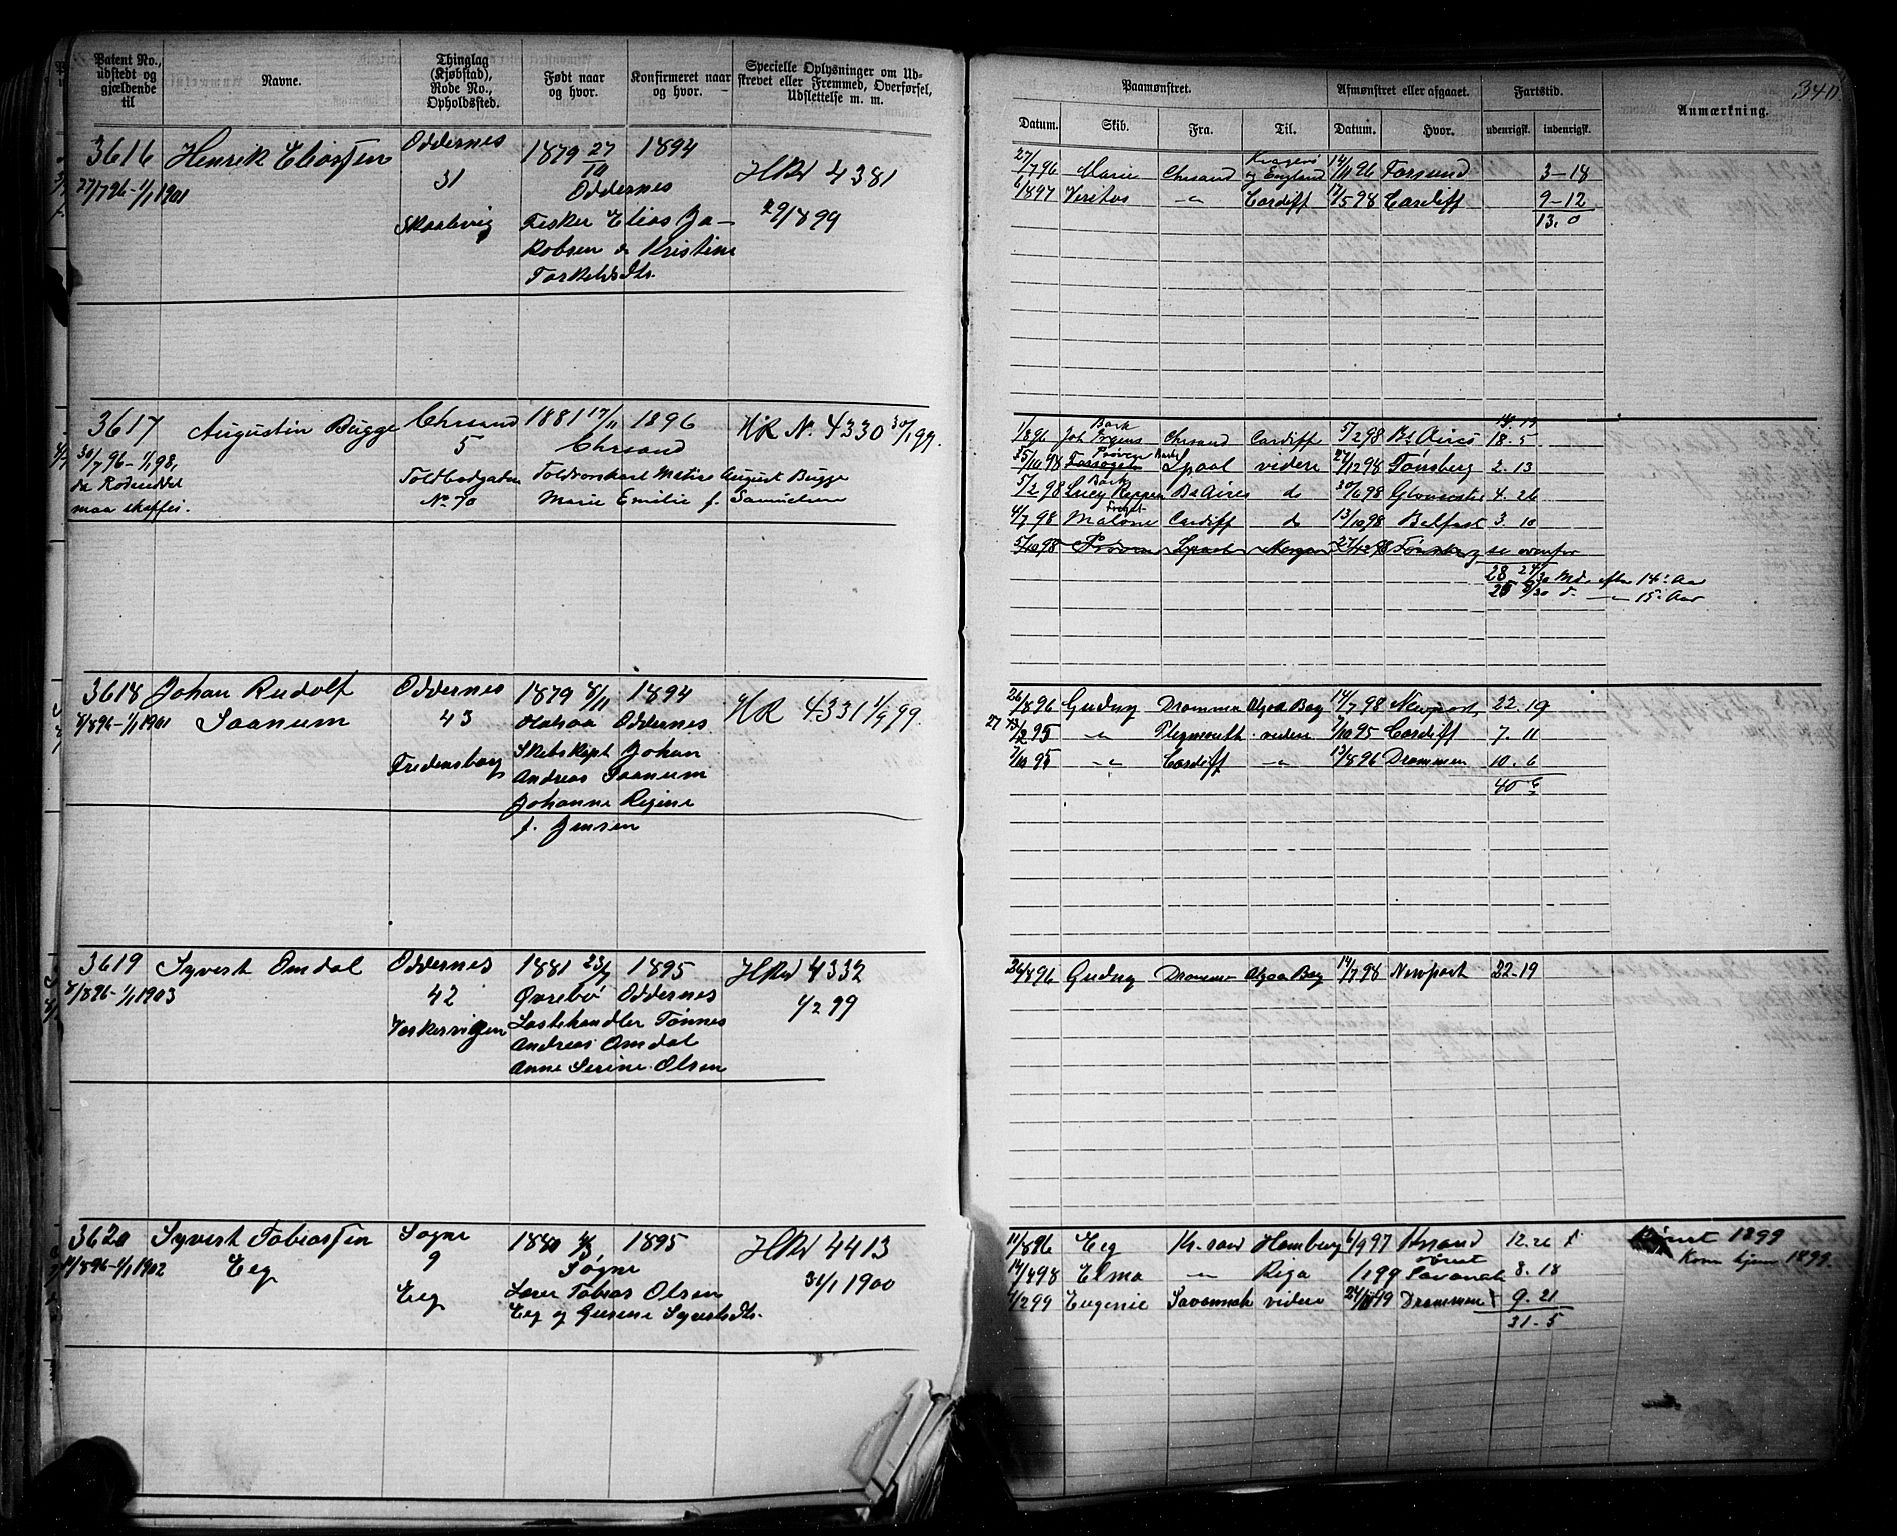 Patent No., udstedt og gjældende til
Navne.
Thinglag (Kjøbstad), Rode No., Opholdssted.
Født naar og hvor.
Konfirmeret naar og hvor.
Specielle Oplysninger om Udskrevet eller Fremmed, Overførsel, Udslettelse m. m.
Paamønstret.
Afmønstret eller afgaaet.
Fartstid.
Anmærkning.
340
Datum. Skib. Fra. Til. Datum. Hvor. udenrigsk. indenrigsk.
3616 Henrik Eliassen Oddernes 1879 27/10 1894 4381
27/7 96 - 1/1 1901 31 Oddernes 29/8 99
Skaalevig Fisker Elias Ja-
kobsen & Kristine
Torkeldsdtr.
27/7 96 Marie Chrsand Kragerø og England 14/11 96 Farsund 3-18
6/1 897 Veritas - " - Cardiff 17/5 98 Cardiff 9-12
13,0
3617 Augustin Bugge Chrsand 1881 17/11 1896 HR No. 4330 30/1 99.
30/7 96 - 1/1 98, 5 Chrsand
da Rodeseddel Toldbodgaden Matius August Bugge
maa skaffes. No. 70 Marie Emilie f. Samuelsen
1/8 96 Bark Joh Irgens Chrsand Cardiff 5/2 98 Bs Aires 18-5
25/10 98 videre 27/12 98 Tønsberg 2. 13
5/2 98 Bark Lucy Bs Aires do 30/6 98 4. 26
4/7 98 Malone Cardiff do 13/10 98 Belfast 3. 10
5/10 98 27/12 98 Tønsberg se ovenfor
28 24/30 Md. efter 14: Aar
25 do - " - 15: Aar
3618 Johan Rudolf Oddernes 1879 8/11 1894 HR 4331 1/9 99.
8/8 96 - 1/1 1901 Saanum 43 Oddernes
Fredensborg Johan
Andreas Saanum
Johanne Regine
f. Jensen
26/8 96 Gudny Drammen Algoa Bay 14/7 98 Newport 22. 19
2 95 - " - Plymouth videre 7/10 95 Cardiff 7. 11
7/10 95 - " - Cardiff - " - 13/8 96 Drammen 10. 6
40 6
3619 Syvert Omdal Oddernes 1881 23/7 1895 4332
8/8 96 - 1/1 1903 42 Øvrebø Oddernes 1/2 99
Tønnes
Andreas Omdal
Anne Serine Olsen
26/8 96 Gudny Drammen Algoa Bay 14/7 98 Newport 22-19
3620 Syvert Tobiassen Sogne 1880 1895 4413
8 96 - 1/1 1902 Eeg 9 Søgne 31/1 1900
Eeg Tobias Olsen
Eeg og Syvertsdtr.
11/8 96 Eeg Kr.sand Hamborg 6/9 97 Krsand 12. 26 1899
14/4 98 Elma - " - Riga 1 99 8. 18 Kom hjem 1899.
4/2 99 Eugenie Savannah videre Drammen 9. 21
31. 5